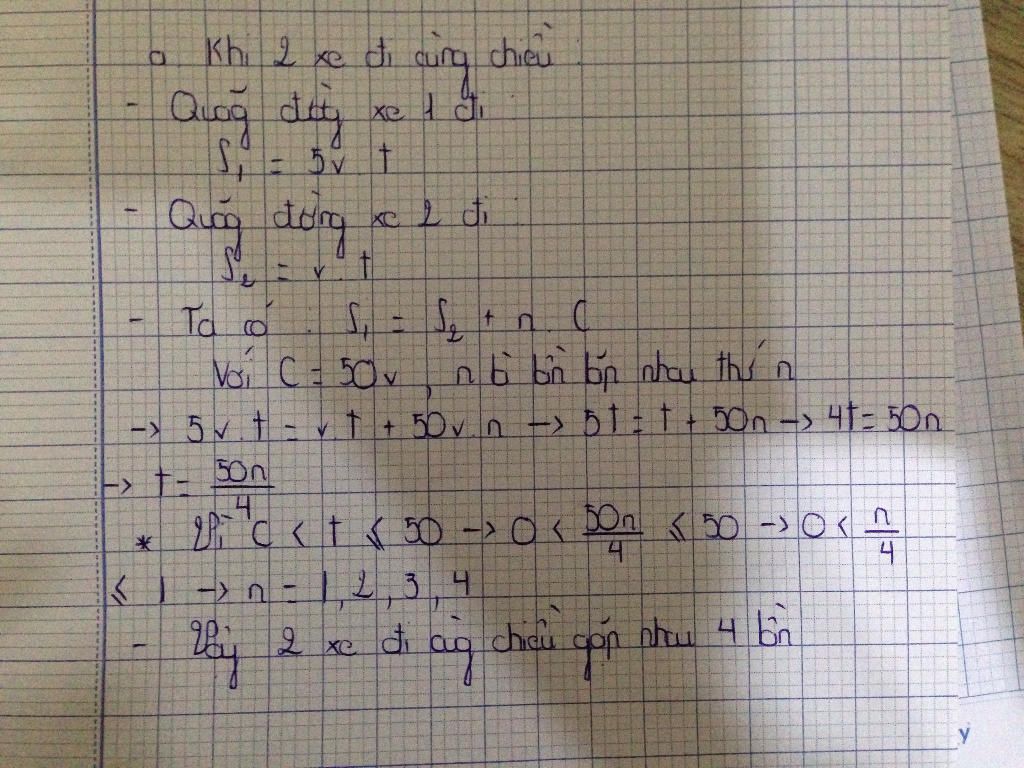 a. Khi 2 xe đi cùng chiều :
- Quãg đườg xe 1 đi :
S₁ = 5v . t
- Quãg đường xe 2 đi :
S₂ = v . t
- Ta có : S₁ = S₂ + n . C
Với C = 50v , n là lần gặp nhau thứ n
→ 5v . t = v . t + 50v . n → 5t = t + 50n → 4t = 50n
→ t = 50n/4
* Vì C < t ≤ 50 → 0 < 50n/4 ≤ 50 → 0 < n/4
≤ 1 → n = 1, 2, 3, 4
- Vậy 2 xe đi cùg chiều gặp nhau 4 lần
y